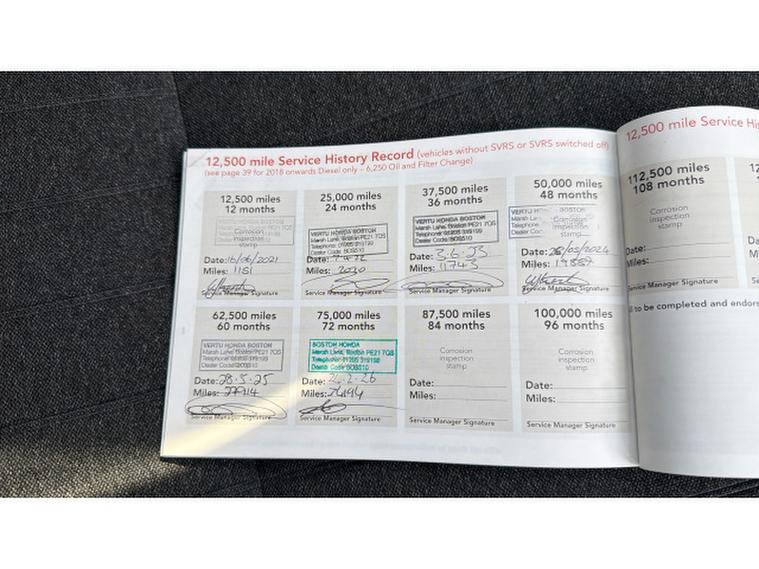 12,500 mile Service History Record (vehicles without SVRS or SVRS switched off)
(see page 39 for 2018 onwards Diesel only – 6,250 Oil and Filter Change)
12,500 miles
12 months
Corrosion
inspection
stamp
Date: 16/06/2021
Miles: 1151
Service Manager Signature
25,000 miles
24 months
VERTU HONDA BOSTON
Marsh Lane, Boston PE21 7QS
Dealer Code: BOS510
Date:
Miles: 2030
Service Manager Signature
37,500 miles
36 months
VERTU HONDA BOSTON
Marsh Lane, Boston PE21 7QS
Dealer Code: BOS510
Date: 3.6.23
Miles: 11743
Service Manager Signature
50,000 miles
48 months
Corrosion
inspection
stamp
Date: /05/2024
Miles:
Service Manager Signature
62,500 miles
60 months
VERTU HONDA BOSTON
Marsh Lane, Boston PE21 7QS
Dealer Code: BOS510
Date: 28.5.25
Miles:
Service Manager Signature
75,000 miles
72 months
BOSTON HONDA
Marsh Lane, Boston PE21 7QS
Dealer Code: BOS510
Date: 2.26
Miles:
Service Manager Signature
87,500 miles
84 months
Corrosion
inspection
stamp
Date:
Miles:
Service Manager Signature
100,000 miles
96 months
Corrosion
inspection
stamp
Date:
Miles:
Service Manager Signature
12,500 mile Service His
112,500 miles
108 months
Corrosion
inspection
stamp
Date:
Miles:
Service Manager Signature
to be completed and endors